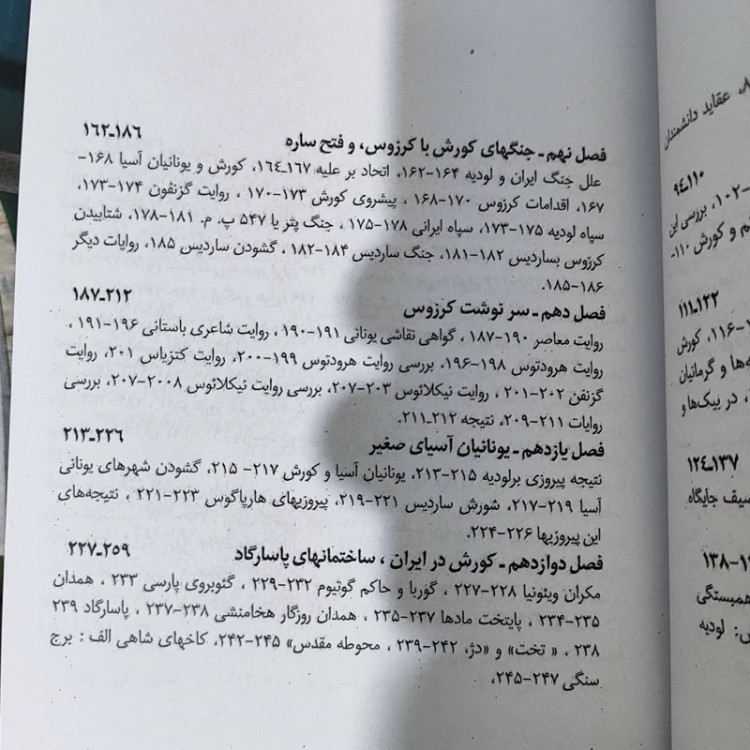 فصل نهم ـ جنگهای کورش با کرزوس، و فتح ساره ۱۸۶ـ۱۶۲
علل جنگ ایران و لودیه ۱۶۴-۱۶۲، اتحاد بر علیه ۱۶۷ـ۱۶۴، کورش و یونانیان آسیا ۱۶۸-
۱۶۷، اقدامات کرزوس ۱۷۰-۱۶۸، پیشروی کورش ۱۷۳-۱۷۰ ، روایت گزنفون ۱۷۴-۱۷۳،
سپاه لودیه ۱۷۵-۱۷۳، سپاه ایرانی ۱۷۸-۱۷۵ ، جنگ پتر یا ۵۴۷ پ. م. ۱۸۱-۱۷۸، شتابیدن
کرزوس بساردیس ۱۸۲-۱۸۱، جنگ ساردیس ۱۸۴-۱۸۲ ، گشودن ساردیس ۱۸۵، روایات دیگر
۱۸۶-۱۸۵.
فصل دهم ـ سر نوشت کرزوس ۲۱۲ـ۱۸۷
روایت معاصر ۱۹۰-۱۸۷ ، گواهی نقاشی یونانی ۱۹۱-۱۹۰ ، روایت شاعری باستانی ۱۹۶-۱۹۱ ،
روایت هرودتوس ۱۹۸-۱۹۶، بررسی روایت هرودتوس ۱۹۹-۲۰۰، روایت کتزیاس ۲۰۱، روایت
گزنفن ۲۰۲-۲۰۱ ، روایت نیکلائوس ۲۰۳-۲۰۷، بررسی روایت نیکلائوس ۲۰۰۸-۲۰۷، بررسی
روایات ۲۱۱-۲۰۹، نتیجه ۲۱۲ـ۲۱۱.
فصل یازدهم ـ یونانیان آسیای صغیر ۲۲۶ـ۲۱۳
نتیجه پیروزی برلودیه ۲۱۵-۲۱۳، یونانیان آسیا و کورش ۲۱۷- ۲۱۵، گشودن شهرهای یونانی
آسیا ۲۱۹-۲۱۷، شورش ساردیس ۲۲۱-۲۱۹، پیروزیهای هارپاگوس ۲۲۳-۲۲۱ ، نتیجه‌های
این پیروزیها ۲۲۶-۲۲۴.
فصل دوازدهم ـ کورش در ایران ، ساختمانهای پاسارگاد ۲۵۹ـ۲۲۷
مکران ویئونیا ۲۲۸-۲۲۷ ، گؤربا و حاکم گوتیوم ۲۳۲-۲۲۹ ، گئوبروی پارسی ۲۳۳ ، همدان
۲۳۵-۲۳۴ ، پایتخت مادها ۲۳۷-۲۳۵ ، همدان روزگار هخامنشی ۲۳۸-۲۳۷ ، پاسارگاد ۲۳۹
۲۳۸ ، « تخت» و «دژ، ۲۴۲-۲۳۹ ، محوطه مقدس» ۲۴۵-۲۴۲، کاخهای شاهی الف : برج
سنگی ۲۴۷-۲۴۵،
عقاید دانشمندان
۱۱۰ـ۹۴
۱۰۲، بررسی این
م و کورش ۱۱۰-
۱۲۲ـ۱۱۱
۱۱۶-، کورش
ه‌ها و گرمانیان
، در بیک‌ها و
۱۳۷ـ۱۲۴
صیف جایگاه
۱۳۸
همبستگی
: لودیه